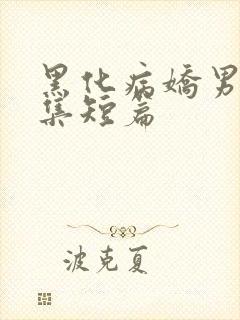 黑化病嬌男
集短篇
波克夏